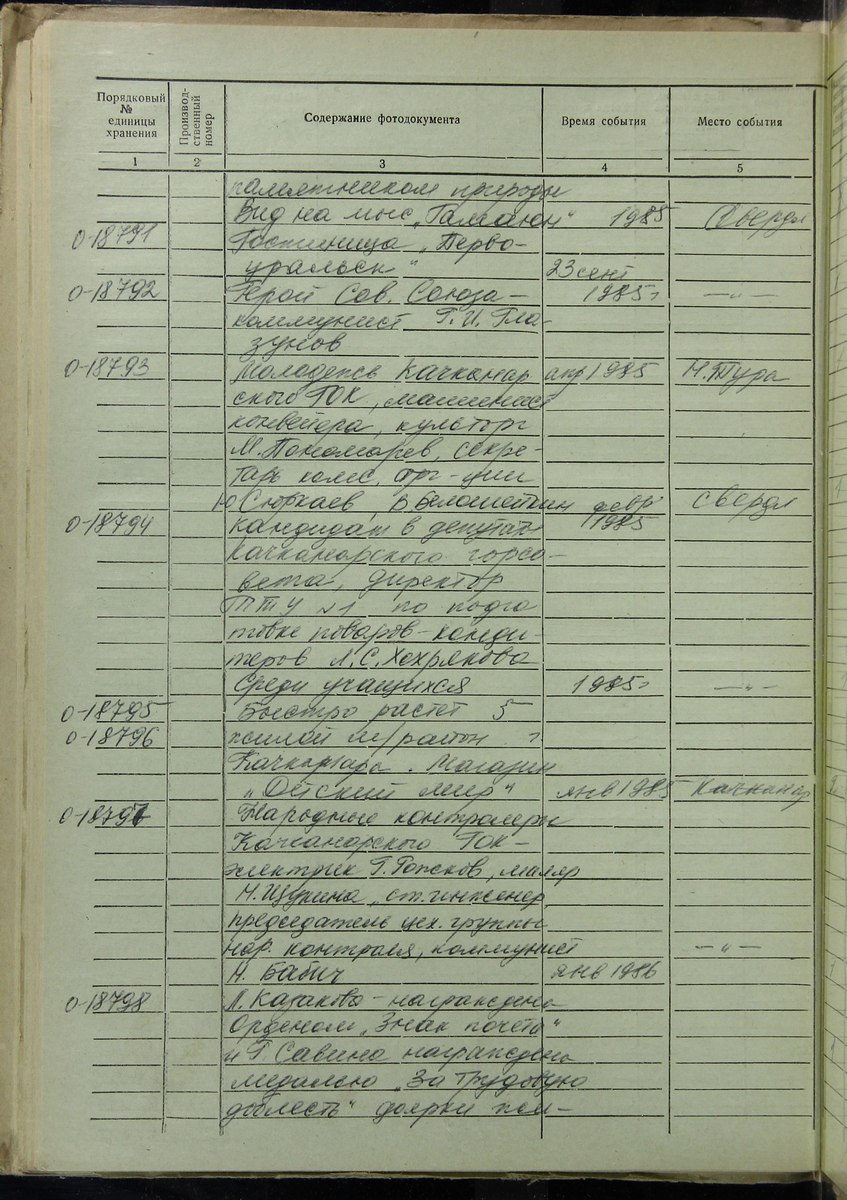 Порядковый № единицы хранения Производственный номер Содержание фотодокумента Время события Место события
1 2 3 4 5
памятником природы
Вид на мыс „Гамаюн“ 1985 Свердл
0-18791 Гостиница „Перво-
уральск“ 23 сент
0-18792 Герой Сов. Союза – 1985г —„—
коммунист Г.И. Гла-
зунов
0-18793 Молодежь Качканар апр 1985 Н.Тура
ского ГОК, машинист
конвейера, культорг
М. Пономарев, секре-
тарь комс. орг-ции
Ю Сюркаев В Белошейкин февр Свердл
0-18794 Кандидат в депутаты 1985
Качканарского горсо-
вета, директор
ТТУ №1 по подго
товке поваров-конди-
теров Л.С. Хохрякова
среди учащихся 1985г —„—
0-18795 Быстро растет 5
0-18796 жилой м/район г
Качканара. Магазин
„Дйский мир“ янв 1985 Качканар
0-18797 Народные контролеры
Качканарского ГОК –
электрик Г. , маляр
Н. Щукина, ст. инженер,
председатель цех. группы
нар. контроля, коммунист —„—
Н. Бабич янв 1986
0-18798 Л. Казакова – награждена
Орденом „Знак почета“
и Г Савина награждена
медалью „За трудовую
доблесть“ доярки пле-